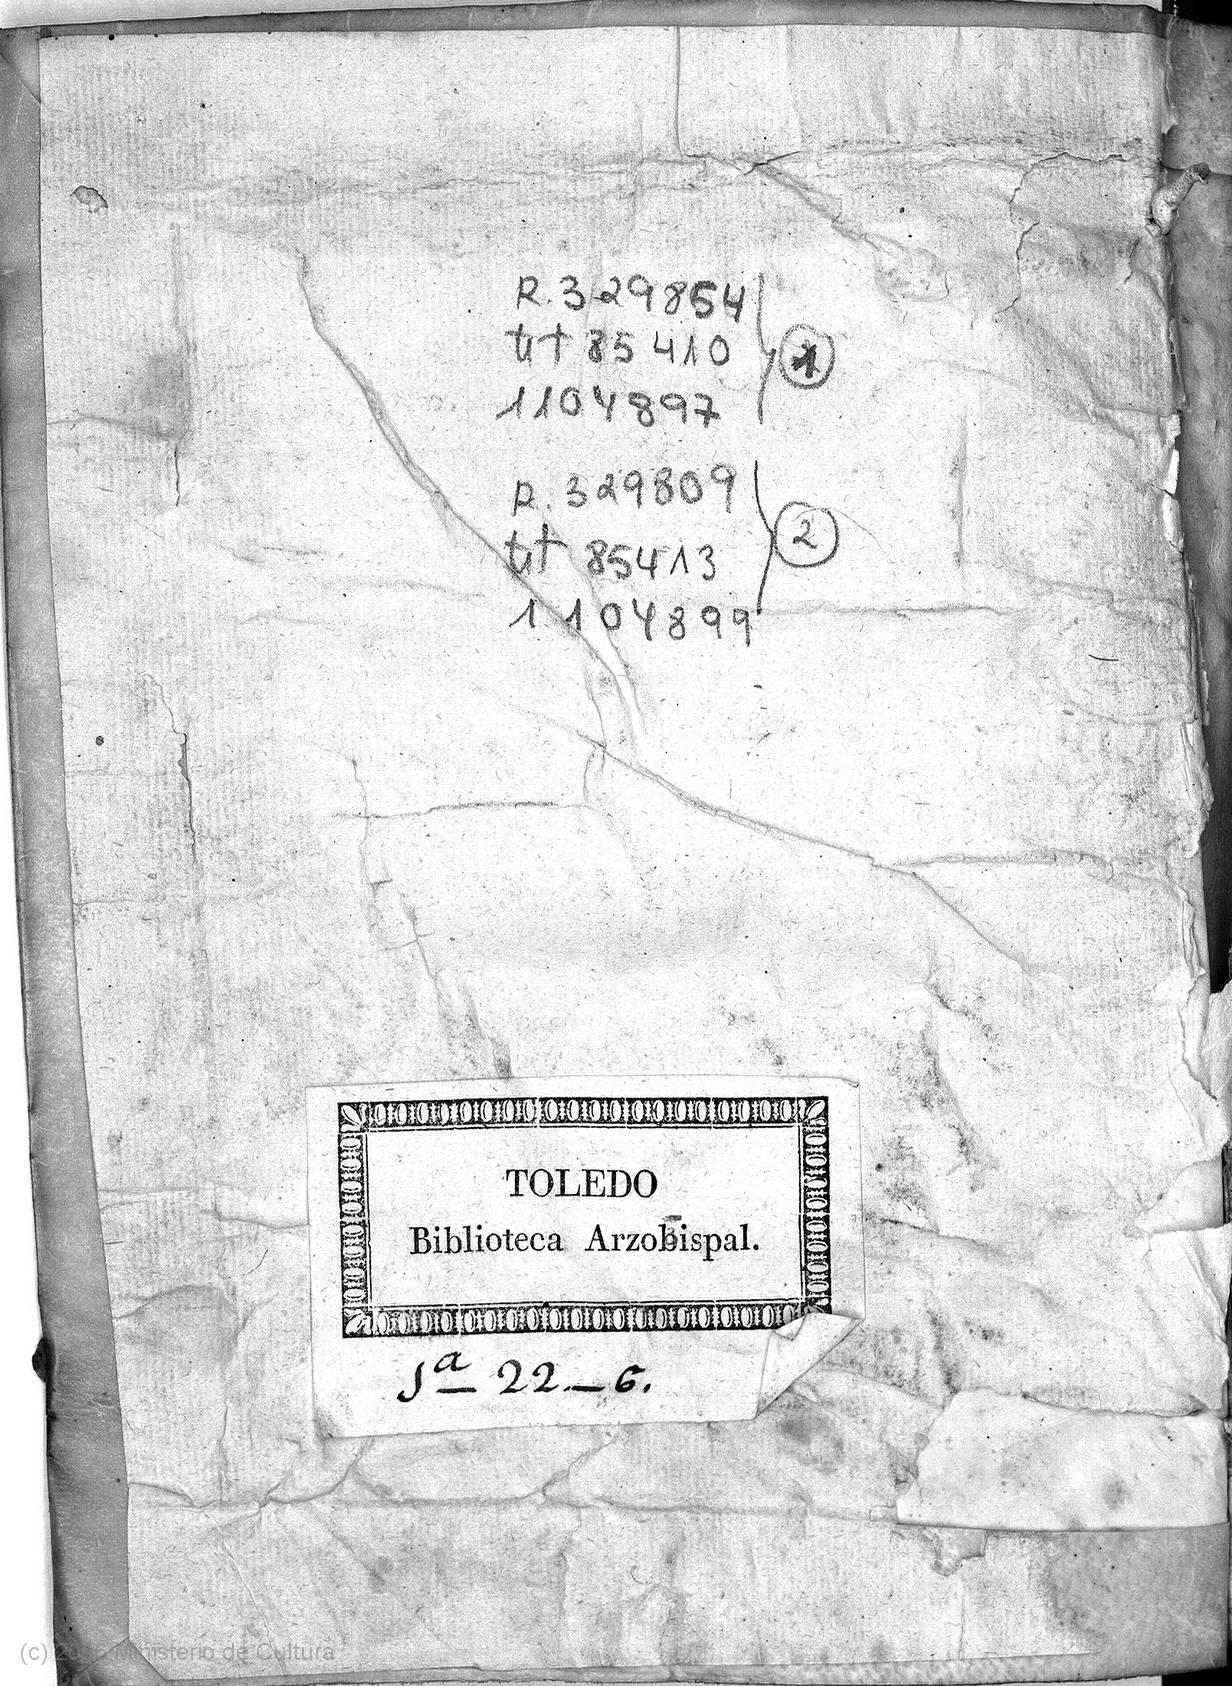 R. 329854
tit 85410
1104897
1
R. 329809
tit 85413
1104899
2
TOLEDO
Biblioteca Arzobispal.
1ª 22-6.
(c) 2006 Ministerio de Cultura